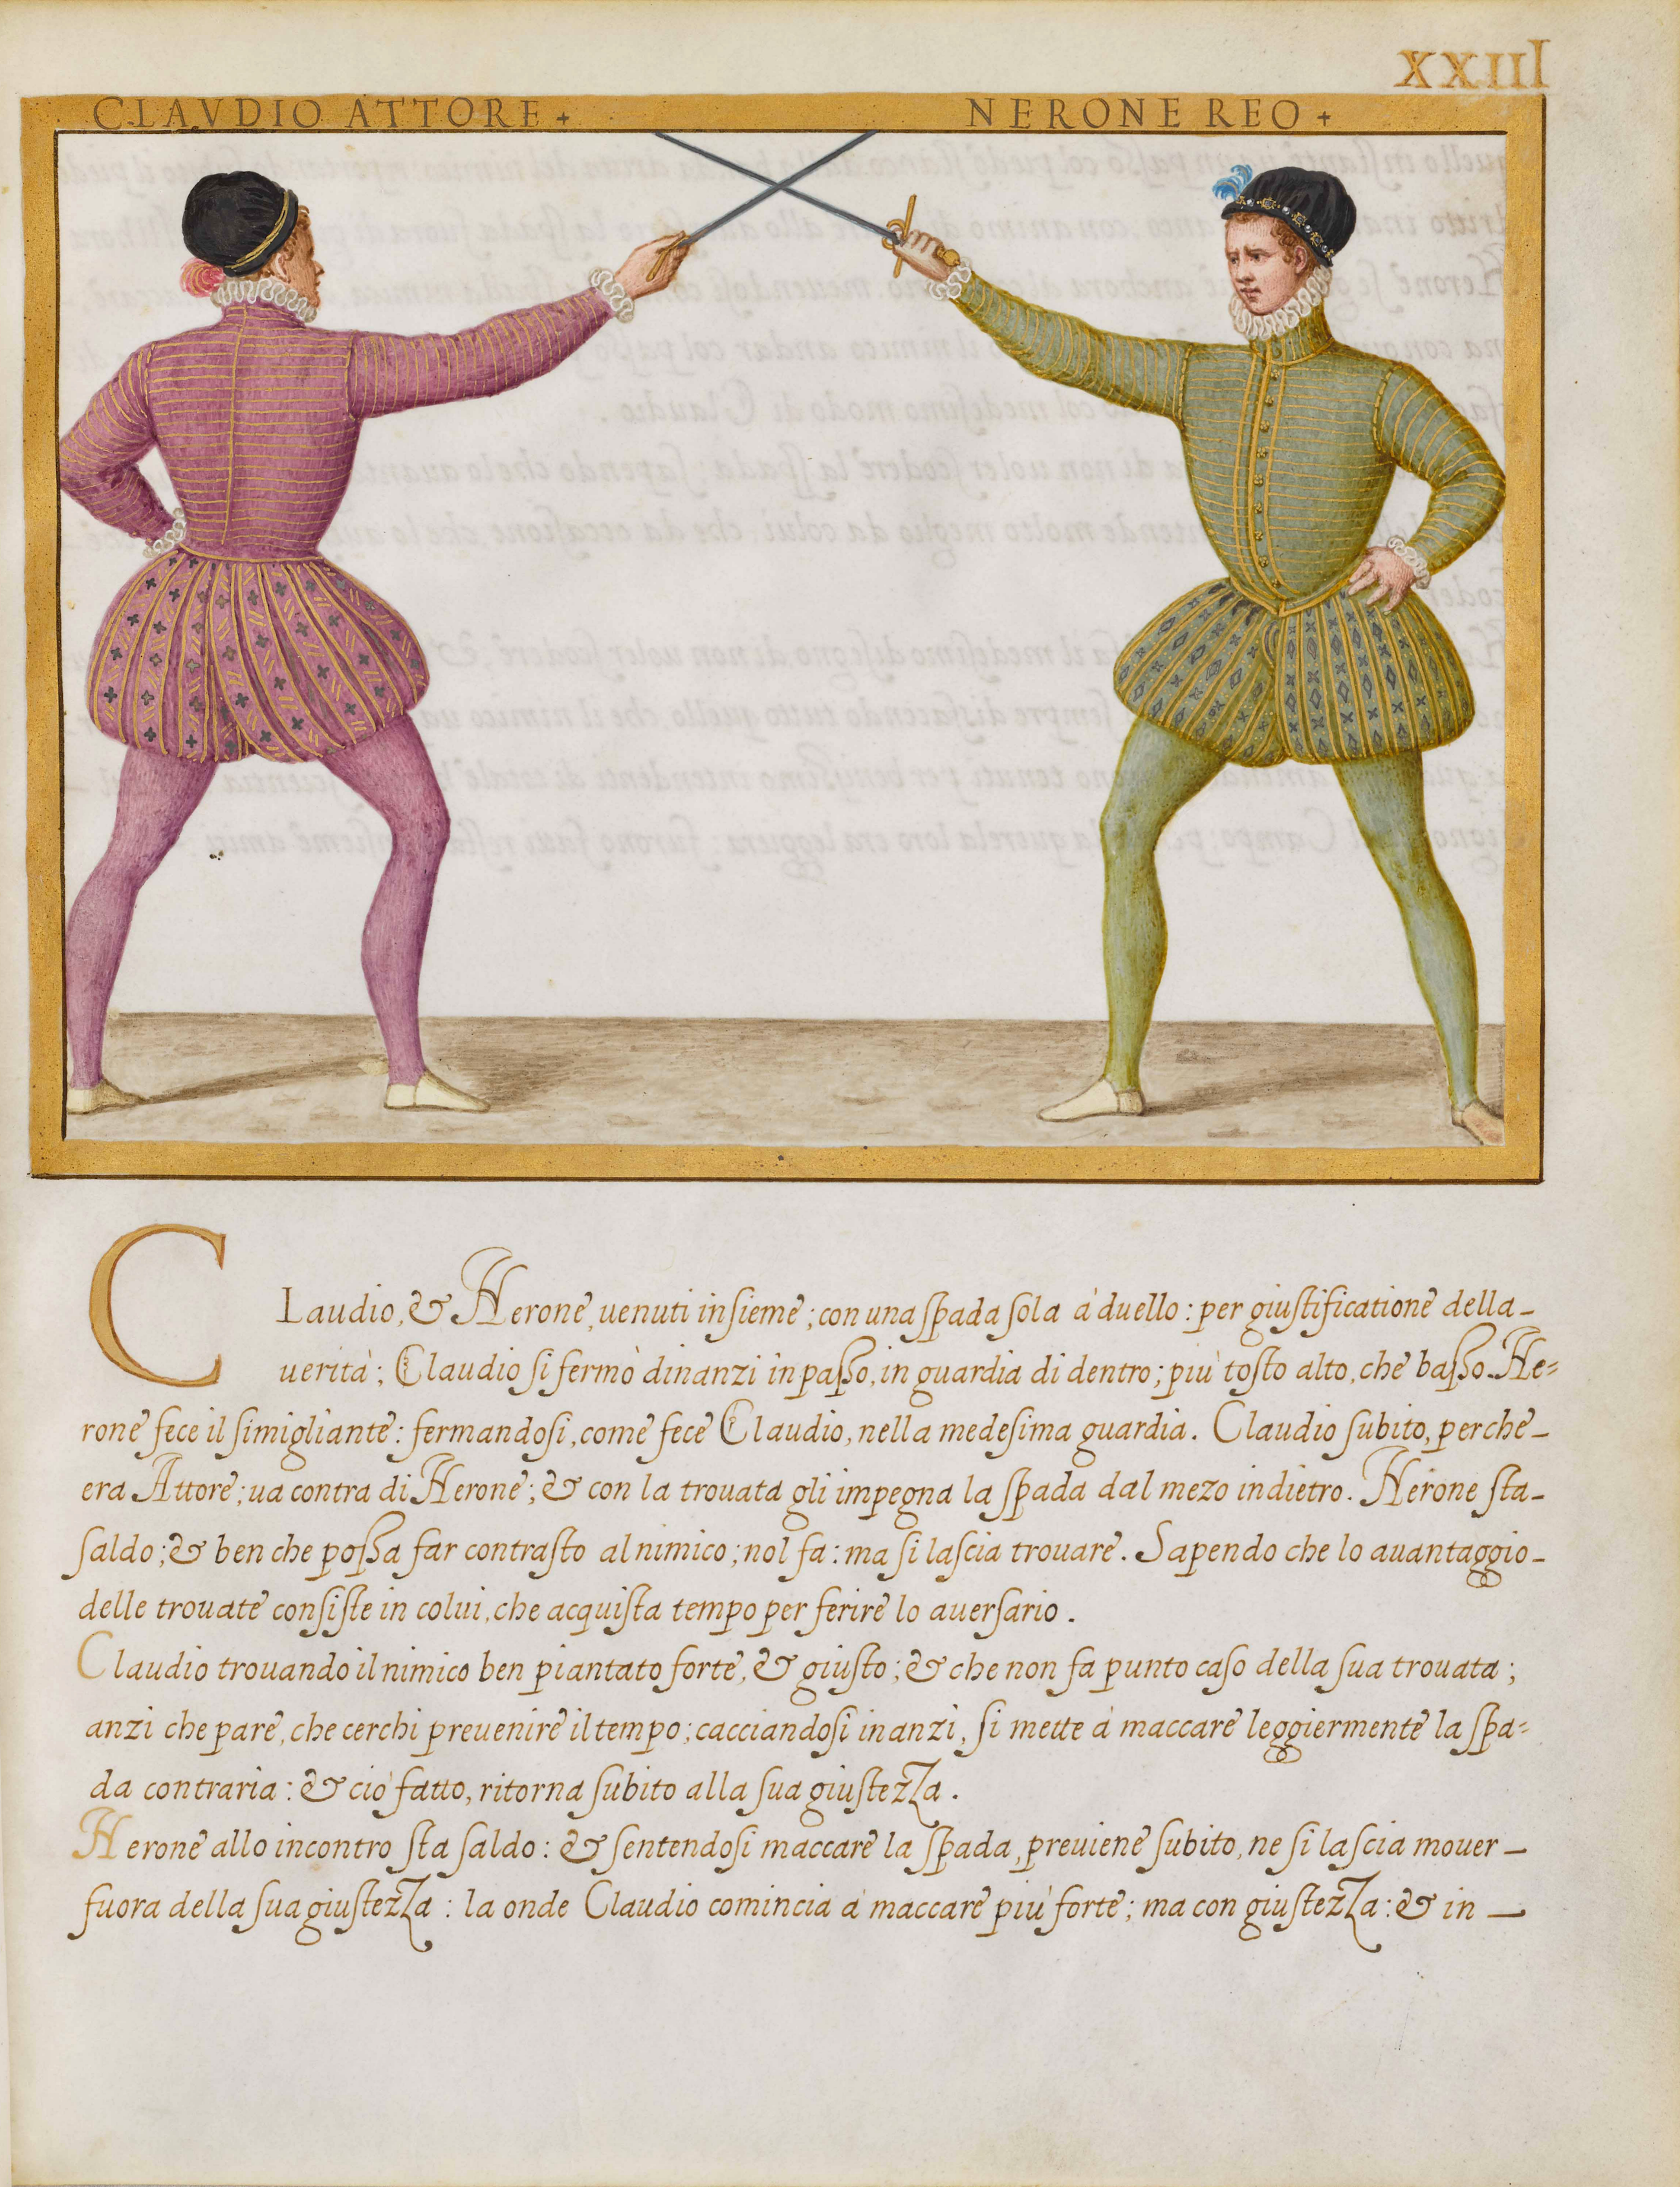 XXIIII
CLAVDIO ATTORE +
NERONE REO +
CLaudio, & Nerone, uenuti insieme; con una spada sola à duello: per giustificatione della
uerità; Claudio si fermò dinanzi in passo, in guardia di dentro; più tosto alto, che basso. Ne=
rone fece il simigliante: fermandosi, come fece Claudio, nella medesima guardia. Claudio subito, perche
era Attore; ua contra di Nerone; & con la trouata gli impegna la spada dal mezo indietro. Nerone sta
saldo; & ben che possa far contrasto al nimico; nol fa: ma si lascia trouare. Sapendo che lo auantaggio
delle trouate consiste in colui, che acquista tempo per ferire lo auersario.
Claudio trouando il nimico ben piantato forte, & giusto; & che non fa punto caso della sua trouata;
anzi che pare, che cerchi preuenire il tempo; cacciandosi inanzi, si mette à maccare leggiermente la spa=
da contraria: & ciò fatto, ritorna subito alla sua giustezza.
Nerone allo incontro sta saldo: & sentendosi maccare la spada, preuiene subito, ne si lascia mouer
fuora della sua giustezza: la onde Claudio comincia à maccare più forte; ma con giustezza: & in